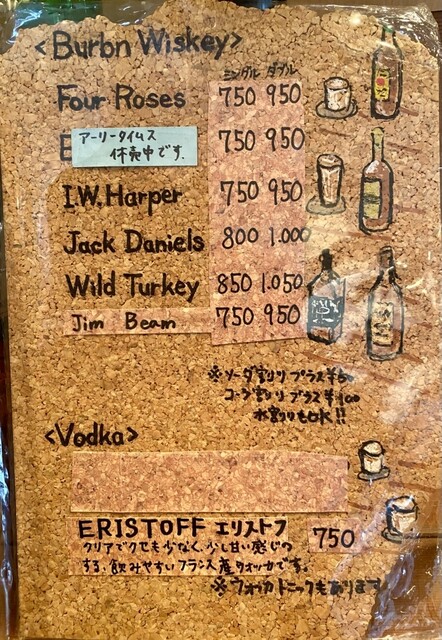 <Burbn Wiskey>
シングル ダブル
Four Roses 750 950
E 750 950
アーリータイムス
休売中です.
I.W. Harper 750 950
Jack Daniels 800 1.000
Wild Turkey 850 1.050
Jim Beam 750 950
※ソーダ割り プラス¥50
コーラ割り プラス¥100
水割りもOK!!
<Vodka>
ERISTOFF エリストフ 750
クリアでクセも少なく、少し甘い感じの
する、飲みやすいフランス産ウォッカです。
※ウォッカトニックもあります